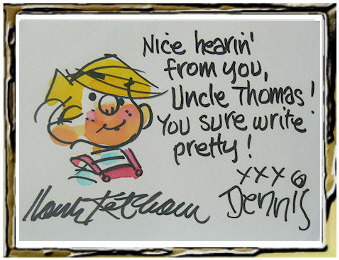 Nice hearin'
from you,
Uncle Thomas!
You sure write
pretty!
xxx
Hank Ketcham
Dennis